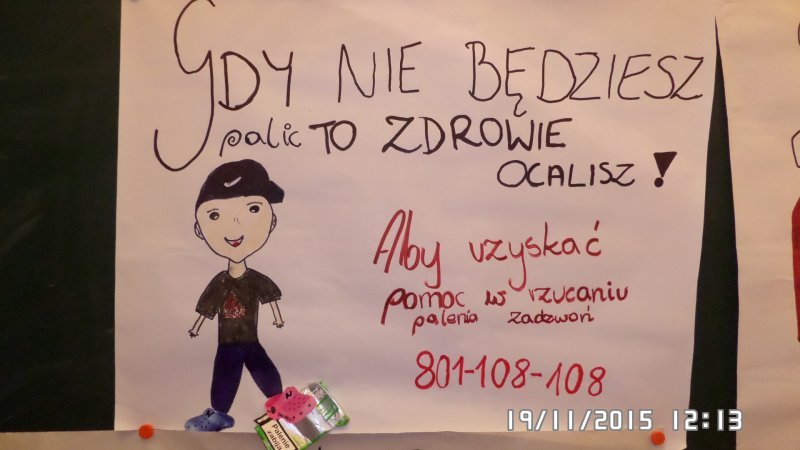 GDY NIE BĘDZIESZ
palic TO ZDROWIE
OCALISZ!
Aby uzyskać
pomoc w rzucaniu
palenia zadzwoń
801-108-108
Palenie
zabija
19/11/2015 12:13